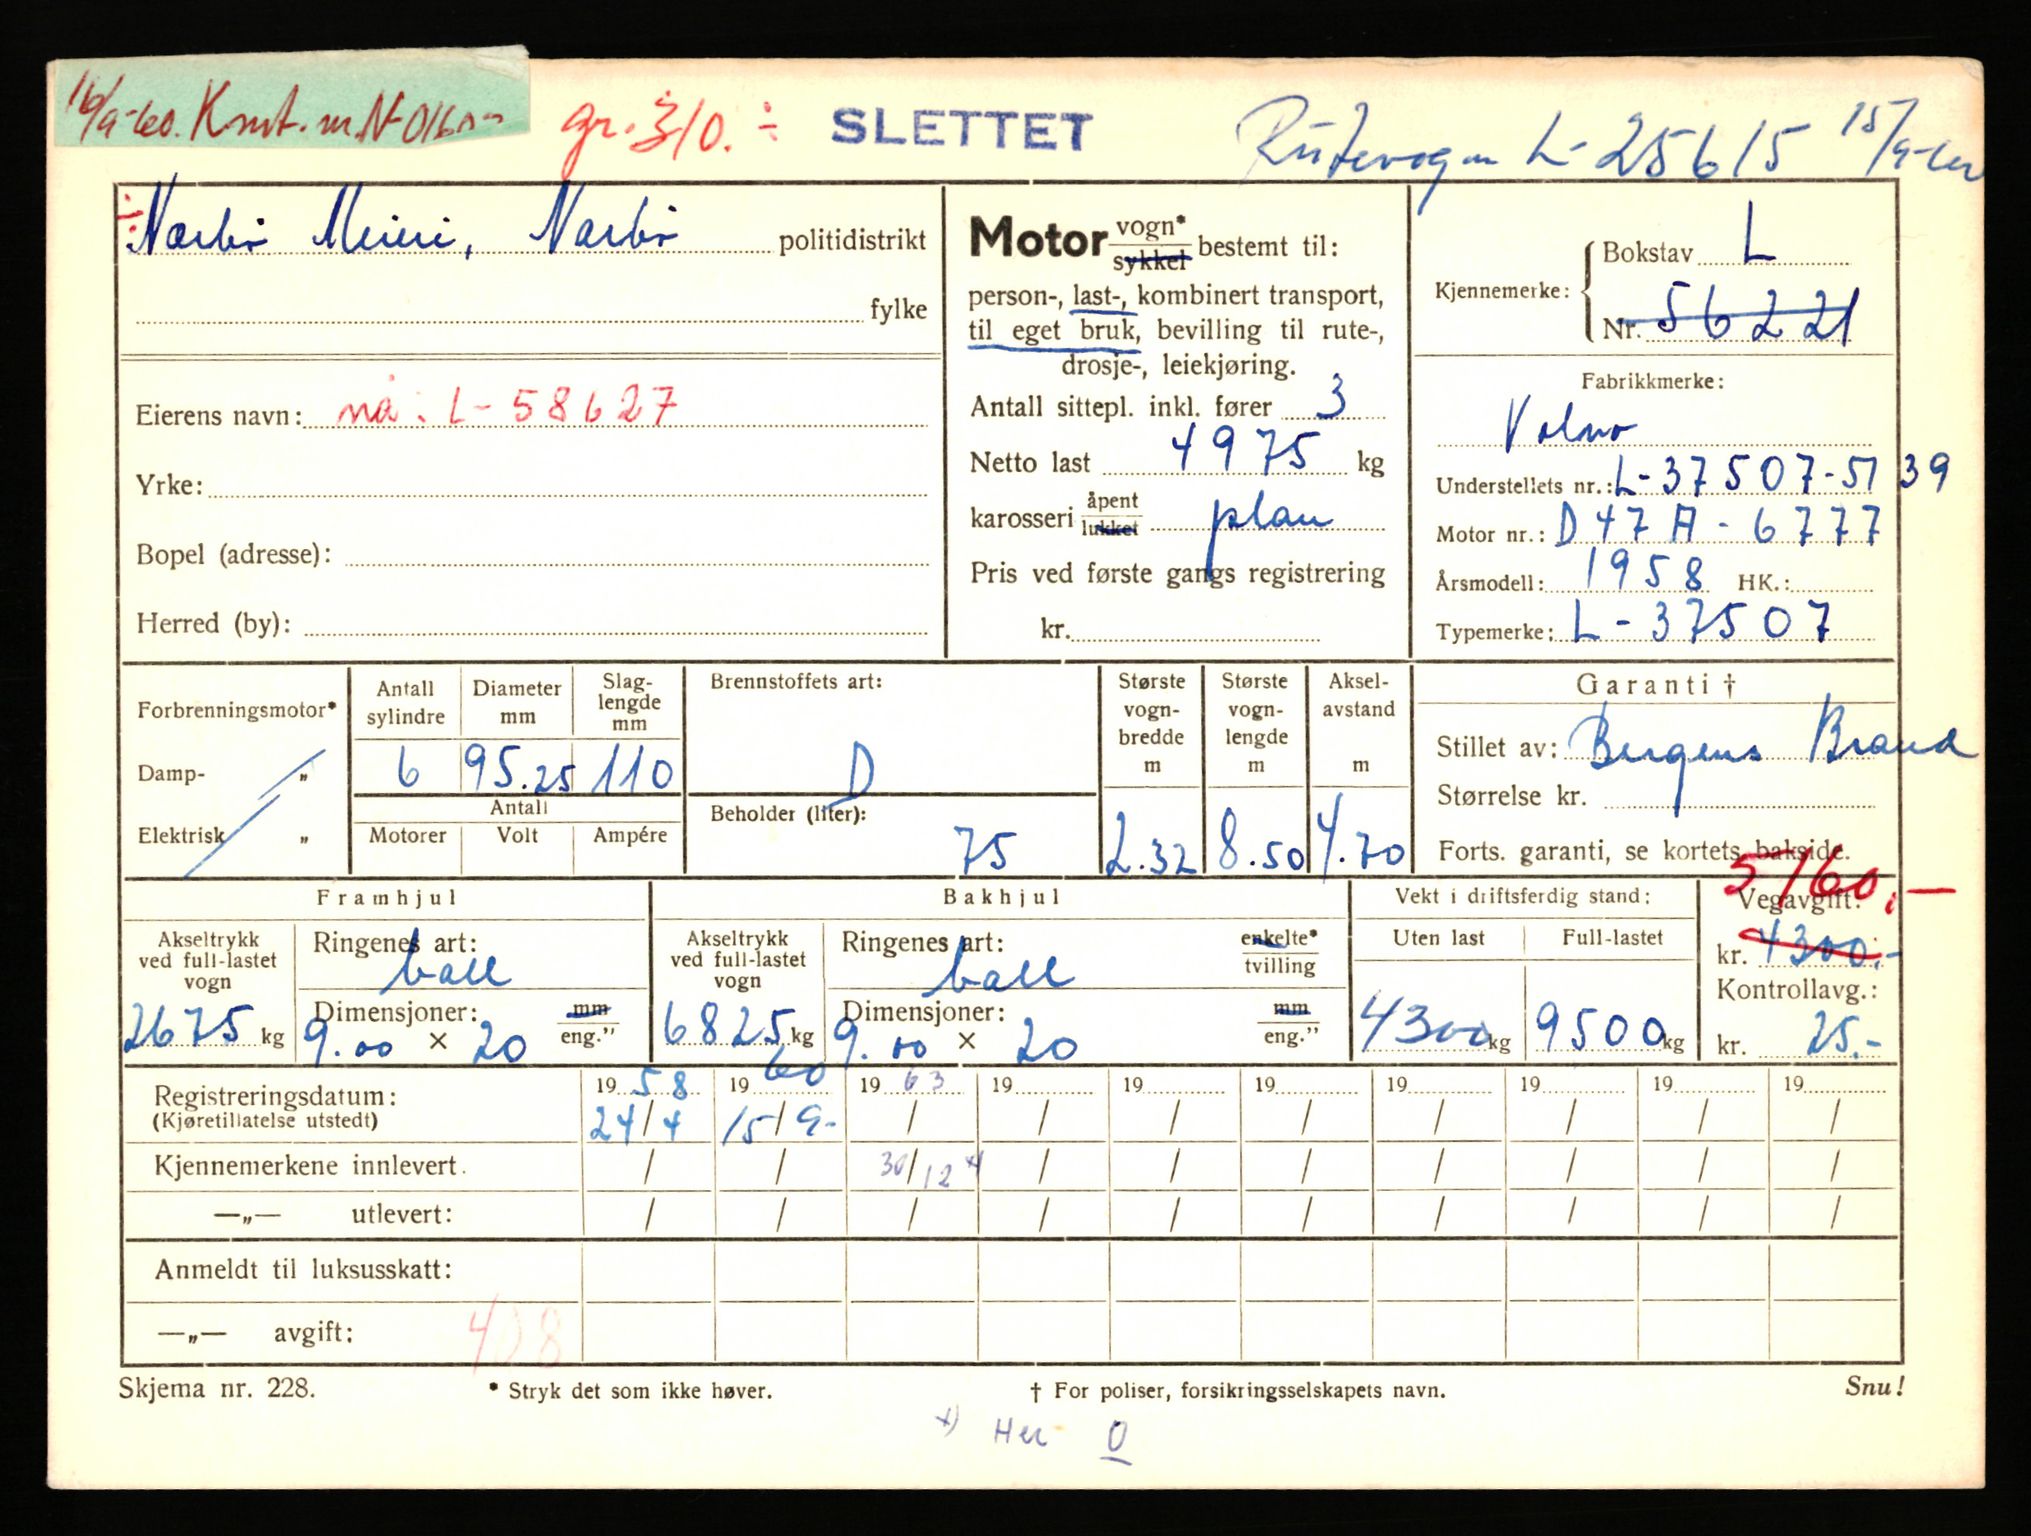 16/9-60. Knt. nr. N-0160-
gr. 310. ÷
SLETTET
Rutevogn L-25615 15/9-60
Nærbø Meieri, Nærbø politidistrikt
fylke
Eierens navn: nå: L-58627
Yrke:
Bopel (adresse):
Herred (by):
Motor vogn*/sykkel bestemt til:
person-, last-, kombinert transport,
til eget bruk, bevilling til rute-,
drosje-, leiekjøring.
Antall sittepl. inkl. fører 3
Netto last 4975 kg
karosseri åpent/lukket plan
Pris ved første gangs registrering
kr.
Kjennemerke: Bokstav L
Nr. 56221
Fabrikkmerke:
Volvo
Understellets nr.: L-37507-5139
Motor nr.: D47A-6777
Årsmodell: 1958 HK.:
Typemerke: L-37507
Forbrenningsmotor*
Damp- „
Elektrisk „
Antall sylindre Diameter mm Slaglengde mm
6 95.25 110
Antall
Motorer Volt Ampére
Brennstoffets art:
D
Beholder (liter):
75
Største vognbredde m
2.32
Største vognlengde m
8.50
Akselavstand m
4.70
Garanti †
Stillet av: Bergens Brand
Størrelse kr.
Forts. garanti, se kortets bakside.
Framhjul
Akseltrykk ved full-lastet vogn
2675 kg
Ringenes art: ball
Dimensjoner: mm/eng."
9.00 × 20
Bakhjul
Akseltrykk ved full-lastet vogn
6825 kg
Ringenes art: ball enkelte*/tvilling
Dimensjoner: mm/eng."
9.00 × 20
Vekt i driftsferdig stand:
Uten last Full-lastet
4300 kg 9500 kg
5160,-
Vegavgift:
kr. 4300.-
Kontrollavg.:
kr. 25.-
Registreringsdatum: 1958 1960 1963 19 19 19 19 19 19 19
(Kjøretillatelse utstedt) 24/4 15/9- / / / / / / / /
Kjennemerkene innlevert. / / 30/12 x) / / / / / / /
—„— utlevert: / / / / / / / / / /
Anmeldt til luksusskatt:
—„— avgift: 408
Skjema nr. 228. * Stryk det som ikke høver. † For poliser, forsikringsselskapets navn. Snu!
x) Her O